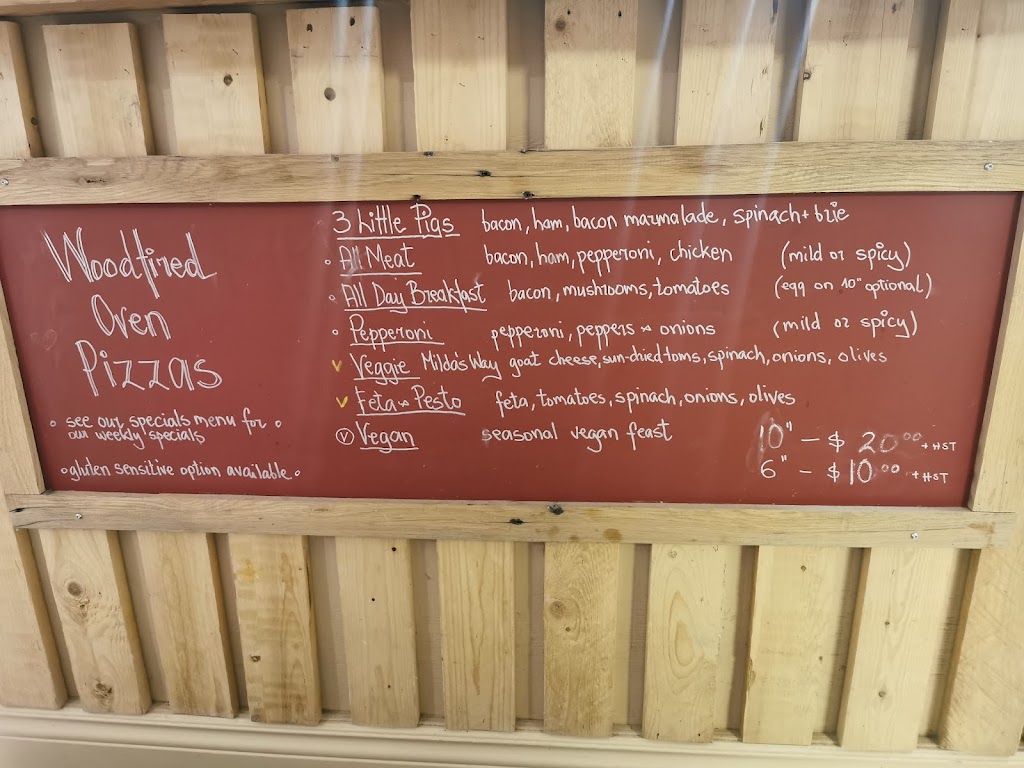 Woodfired
Oven
Pizzas
• see our specials menu for •
our weekly specials
• gluten sensitive option available •
3 Little Pigs bacon, ham, bacon marmalade, spinach + brie
• All Meat bacon, ham, pepperoni, chicken (mild or spicy)
• All Day Breakfast bacon, mushrooms, tomatoes (egg on 10" optional)
• Pepperoni pepperoni, peppers & onions (mild or spicy)
v Veggie Milda's Way goat cheese, sun-dried toms, spinach, onions, olives
v Feta & Pesto feta, tomatoes, spinach, onions, olives
Ⓥ Vegan seasonal vegan feast
10" - $ 20.00 + HST
6" - $ 10.00 + HST